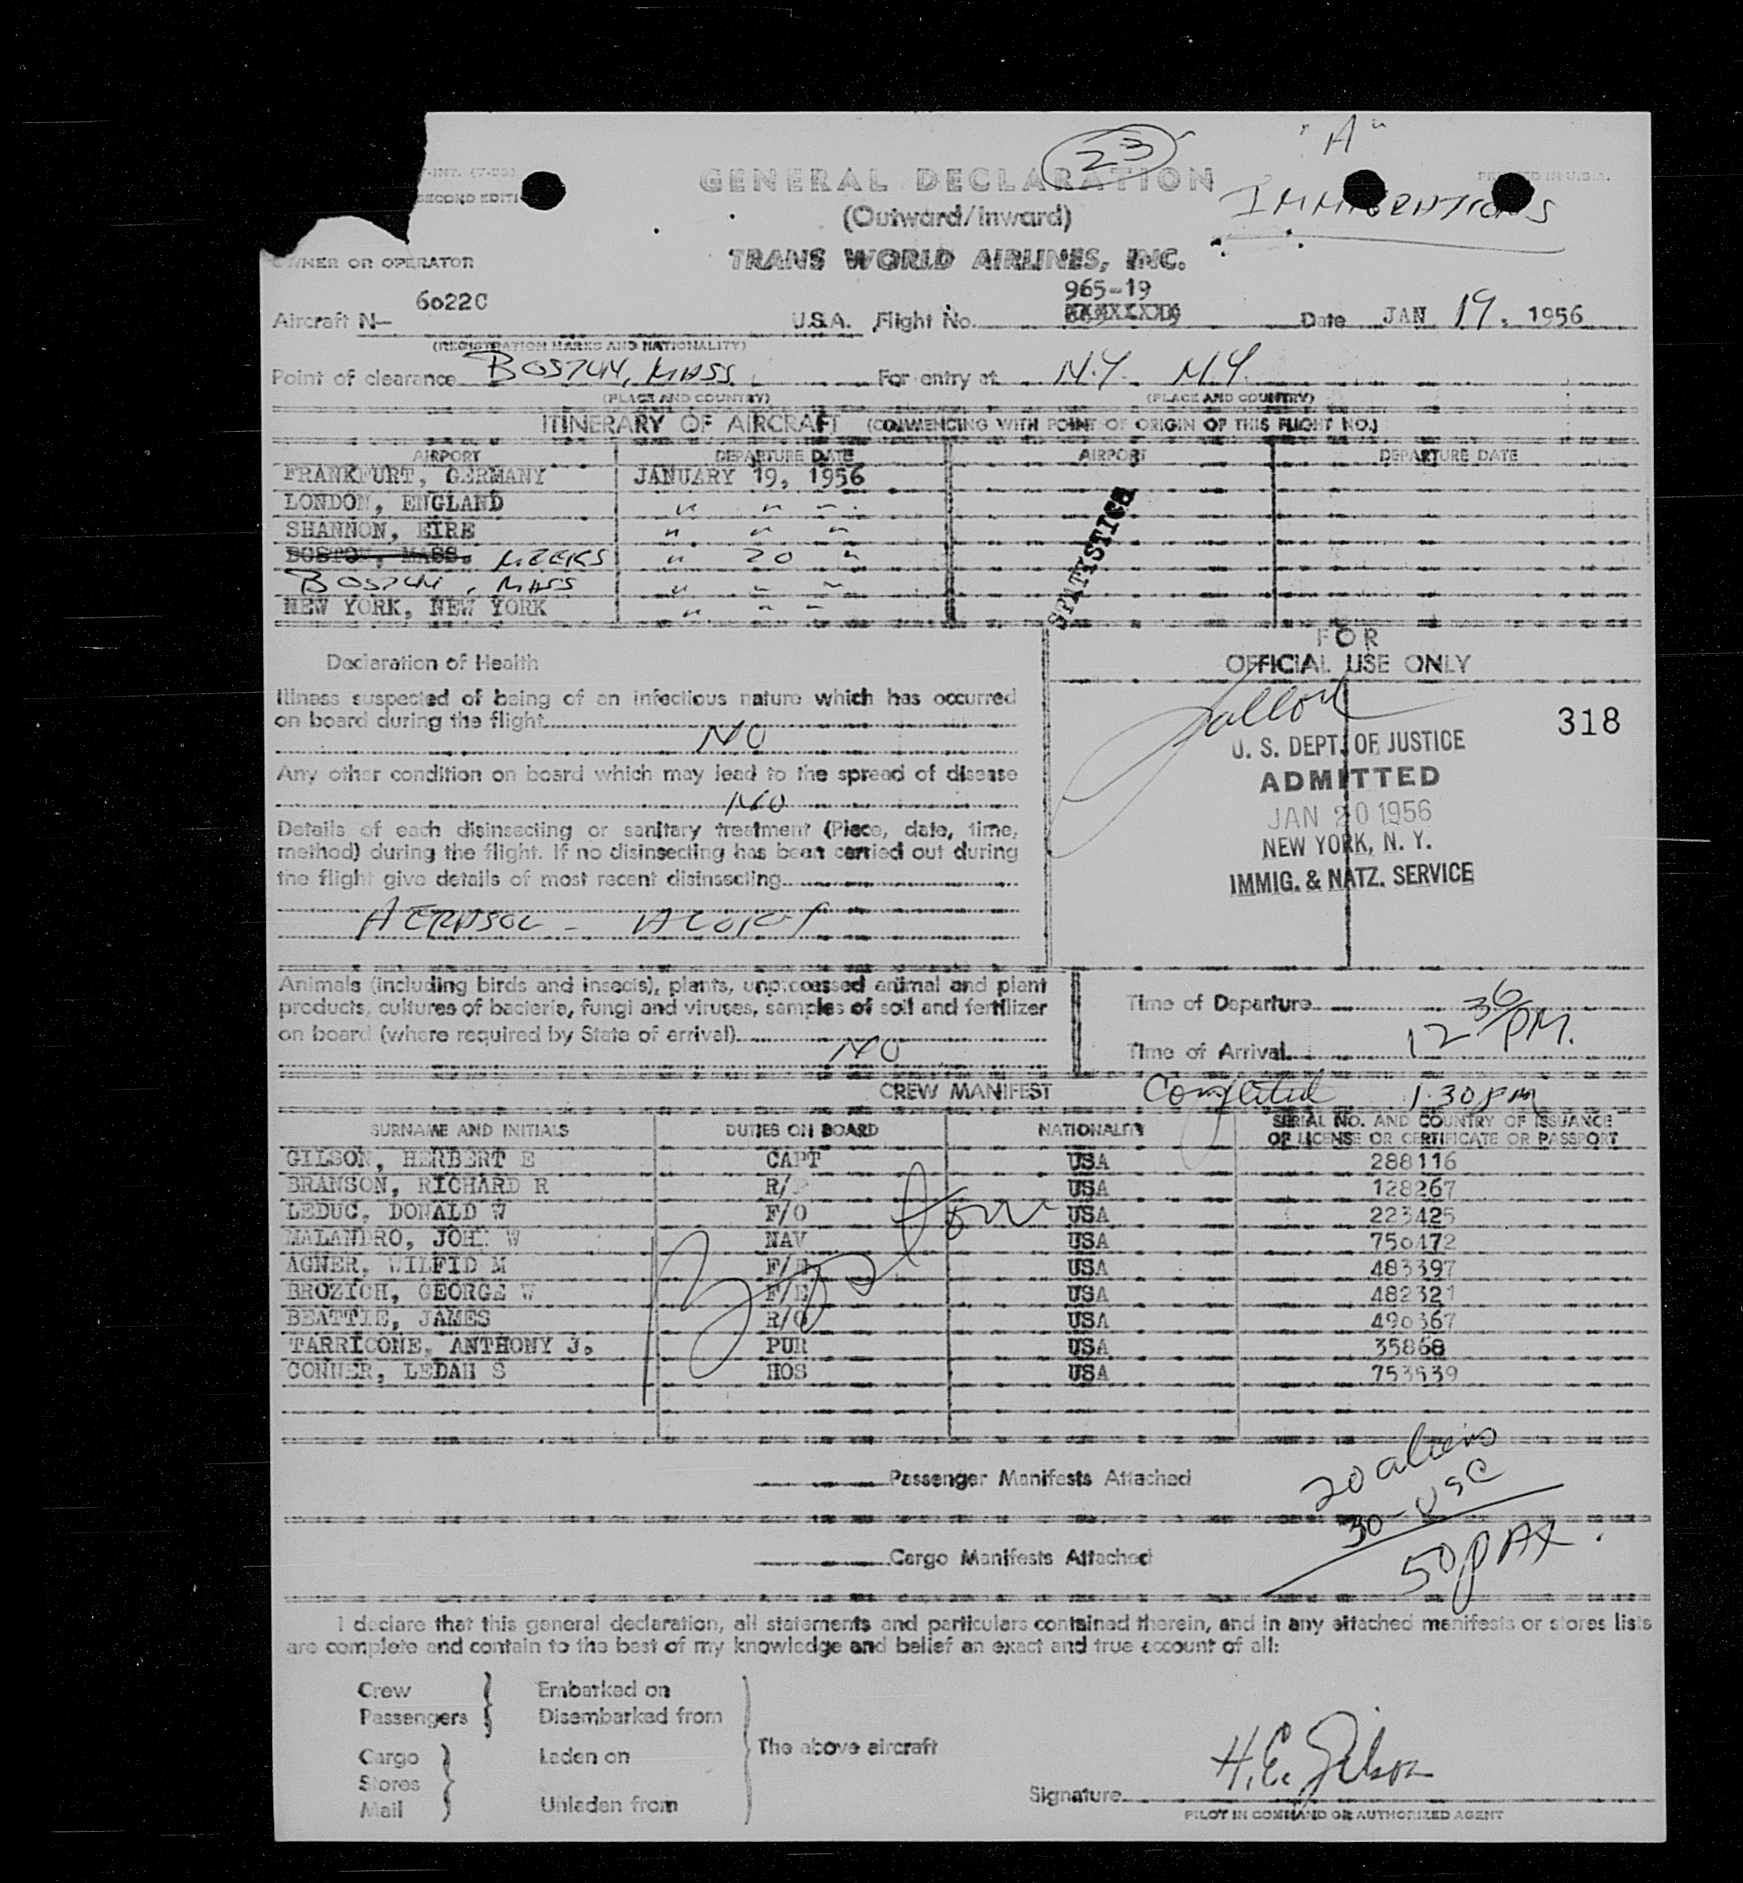 "A"
23
GENERAL DECLARATION
SECOND EDITI
(Outward/Inward)
IMMIGRATIONS
TRANS WORLD AIRLINES, INC.
OWNER OR OPERATOR
965-19
Aircraft N- 6022C U.S.A. Flight No. Date JAN 19, 1956
(REGISTRATION MARKS AND NATIONALITY)
Point of clearance BOSTON, MASS. For entry at N.Y. N.Y.
(PLACE AND COUNTRY) (PLACE AND COUNTRY)
ITINERARY OF AIRCRAFT (COMMENCING WITH POINT OF ORIGIN OF THIS FLIGHT NO.)
AIRPORT DEPARTURE DATE AIRPORT DEPARTURE DATE
FRANKFURT, GERMANY JANUARY 19, 1956
LONDON, ENGLAND " " "
SHANNON, EIRE " " "
BOSTON, MASS. MEEKS " 20 "
BOSTON, MASS " " "
NEW YORK, NEW YORK " " "
STATISTICS
FOR
OFFICIAL USE ONLY
Declaration of Health
Illness suspected of being of an infectious nature which has occurred
on board during the flight
NO
318
U. S. DEPT. OF JUSTICE
ADMITTED
JAN 20 1956
NEW YORK, N. Y.
IMMIG. & NATZ. SERVICE
Any other condition on board which may lead to the spread of disease
NO
Details of each disinsecting or sanitary treatment (Place, date, time,
method) during the flight. If no disinsecting has been carried out during
the flight give details of most recent disinsecting
AEROSOL -
Animals (including birds and insects), plants, unprocessed animal and plant
products, cultures of bacteria, fungi and viruses, samples of soil and fertilizer
on board (where required by State of arrival)
NO
Time of Departure
Time of Arrival 12 36 PM.
CREW MANIFEST Completed 1.30 PM
SURNAME AND INITIALS DUTIES ON BOARD NATIONALITY SERIAL NO. AND COUNTRY OF ISSUANCE
OF LICENSE OR CERTIFICATE OR PASSPORT
GILSON, HERBERT E CAPT USA 288116
BRANSON, RICHARD R R/ USA 128267
LEDUC, DONALD W F/O USA 223425
MALANDRO, JOHN W NAV USA 750472
AGNER, WILFID M F/E USA 483397
BROZICH, GEORGE W F/E USA 482321
BEATTIE, JAMES R/O USA 490367
TARRICONE, ANTHONY J. PUR USA 35868
CONNER, LEDAH S HOS USA 753539
Passenger Manifests Attached
20 aliens
30 - USC
50 PAX.
Cargo Manifests Attached
I declare that this general declaration, all statements and particulars contained therein, and in any attached manifests or stores lists
are complete and contain to the best of my knowledge and belief an exact and true account of all:
Crew Embarked on
Passengers Disembarked from
The above aircraft
Cargo Laden on
Stores
Mail Unladen from
H.E. Gilson
Signature
PILOT IN COMMAND OR AUTHORIZED AGENT